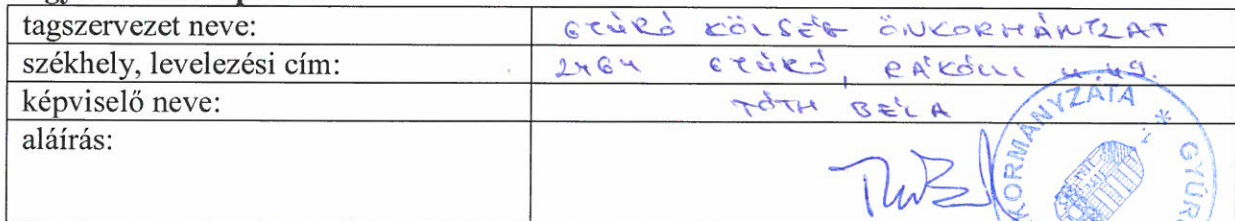 tagszervezet neve: GYÚRÓ KÖLSÉG ÖNKORMÁNYZAT
székhely, levelezési cím: 2464 GYÚRÓ, RÁKÓCZI U. 49.
képviselő neve: TÓTH BÉLA
aláírás:
KORMÁNYZATA * GYÚR